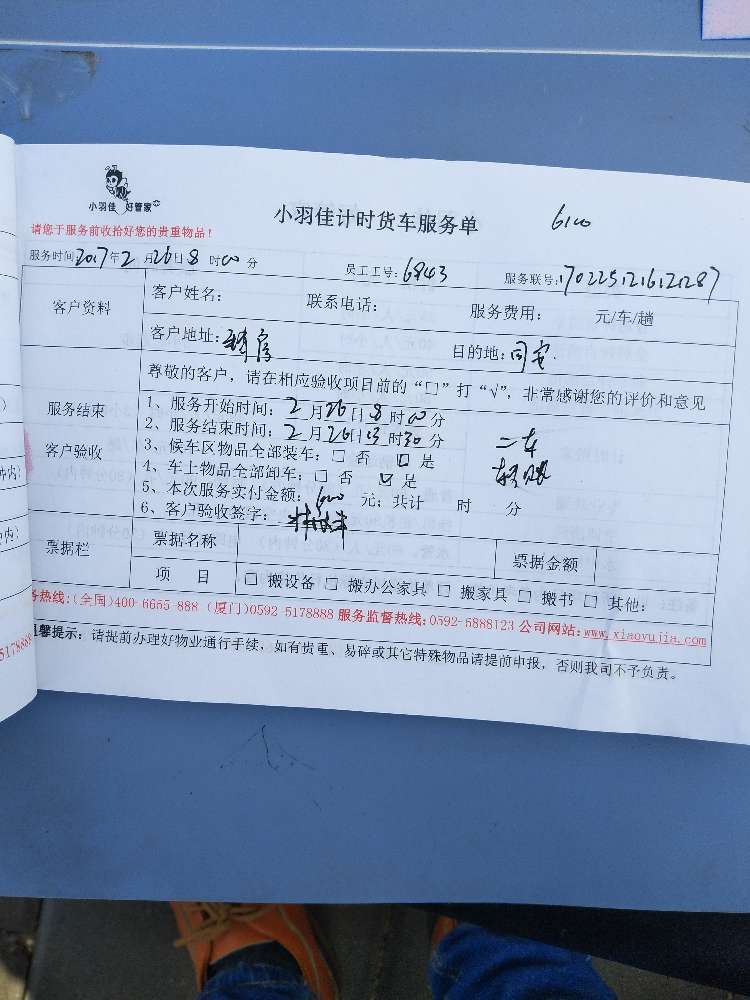 小羽佳 好管家
小羽佳计时货车服务单 6100
请您于服务前收拾好您的贵重物品！
服务时间2017年2月26日8时00分 员工工号：6843 服务联号：1702251216121287
客户资料 客户姓名： 联系电话： 服务费用： 元/车/趟
客户地址： 目的地：同安.
尊敬的客户，请在相应验收项目前的“□”打“√”，非常感谢您的评价和意见
服务结束
客户验收
1、服务开始时间：2月26日8时00分
2、服务结束时间：2月26日13时30分 二车
3、候车区物品全部装车：□ 否 □ 是
4、车上物品全部卸车：□ 否 ☑ 是
5、本次服务实付金额： 元；共计 时 分
6、客户验收签字：
票据栏 票据名称 票据金额
项 目 □ 搬设备 □ 搬办公家具 □ 搬家具 □ 搬书 □ 其他：
务热线：(全国)400-6655-888 (厦门)0592-5178888 服务监督热线：0592-5888123 公司网站：www.xiaoyujia.com
温馨提示：请提前办理好物业通行手续，如有贵重、易碎或其它特殊物品请提前申报，否则我司不予负责。
钟内）
内）
5178888